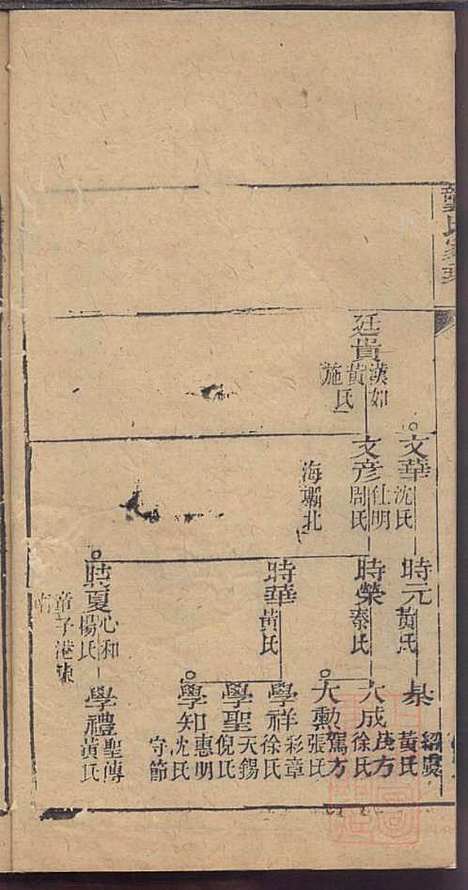 氏家
廷貴
漢如
黃氏
施氏
文華
沈氏
文彥
仕明
周氏
海壩北
時元
黃氏
時榮
秦氏
時華
黃氏
時夏
心和
楊氏
童子港東
南
杲
紹虞
黃氏
大成
徐氏
大勳
駕方
張氏
學祥
彩章
徐氏
學聖
天錫
倪氏
學知
惠明
沈氏
守節
學禮
聖傳
黃氏